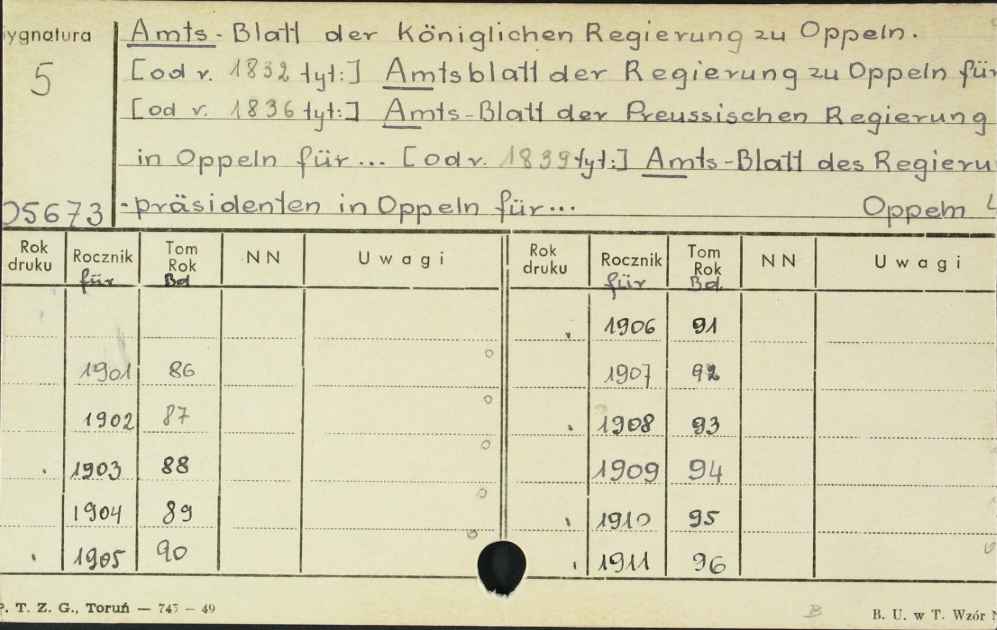 ygnatura
5
Amts-Blatt der Königlichen Regierung zu Oppeln.
[od r. 1832 tyt:] Amtsblatt der Regierung zu Oppeln für
[od r. 1836 tyt:] Amts-Blatt der Preussischen Regierung
in Oppeln für... [od r. 1839 tyt:] Amts-Blatt des Regieru
05673 -präsidenten in Oppeln für... Oppeln
Rok druku Rocznik für Tom Rok Bd NN Uwagi Rok druku Rocznik für Tom Rok Bd. NN Uwagi
1906 91
1901 86 1907 92
1902 87 1908 93
1903 88 1909 94
1904 89 1910 95
1905 90 1911 96
P. T. Z. G., Toruń — 745 — 49 B B. U. w T. Wzór